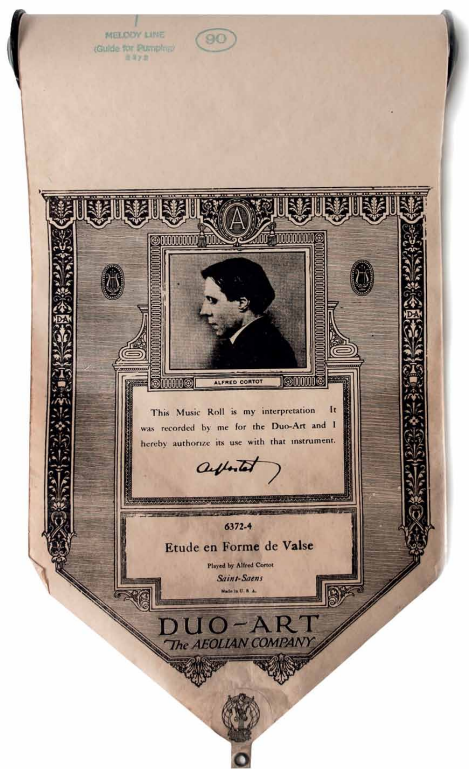 MELODY LINE
(Guide for Pumping)
90
A
D-A
D-A
ALFRED CORTOT
This Music Roll is my interpretation It
was recorded by me for the Duo-Art and I
hereby authorize its use with that instrument.
6372-4
Etude en Forme de Valse
Played by Alfred Cortot
Saint-Saens
Made in U. S. A.
DUO-ART
The AEOLIAN COMPANY